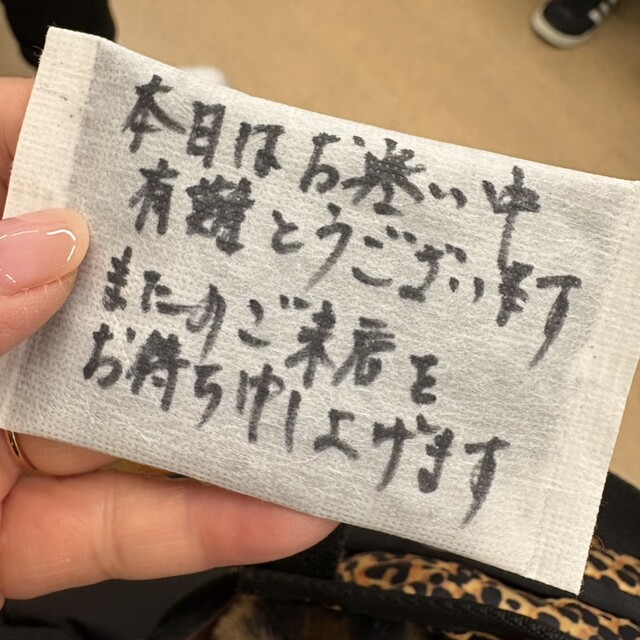 本日はお塗い中
有難とうございます
またのご来店を
お待ち申し上げます